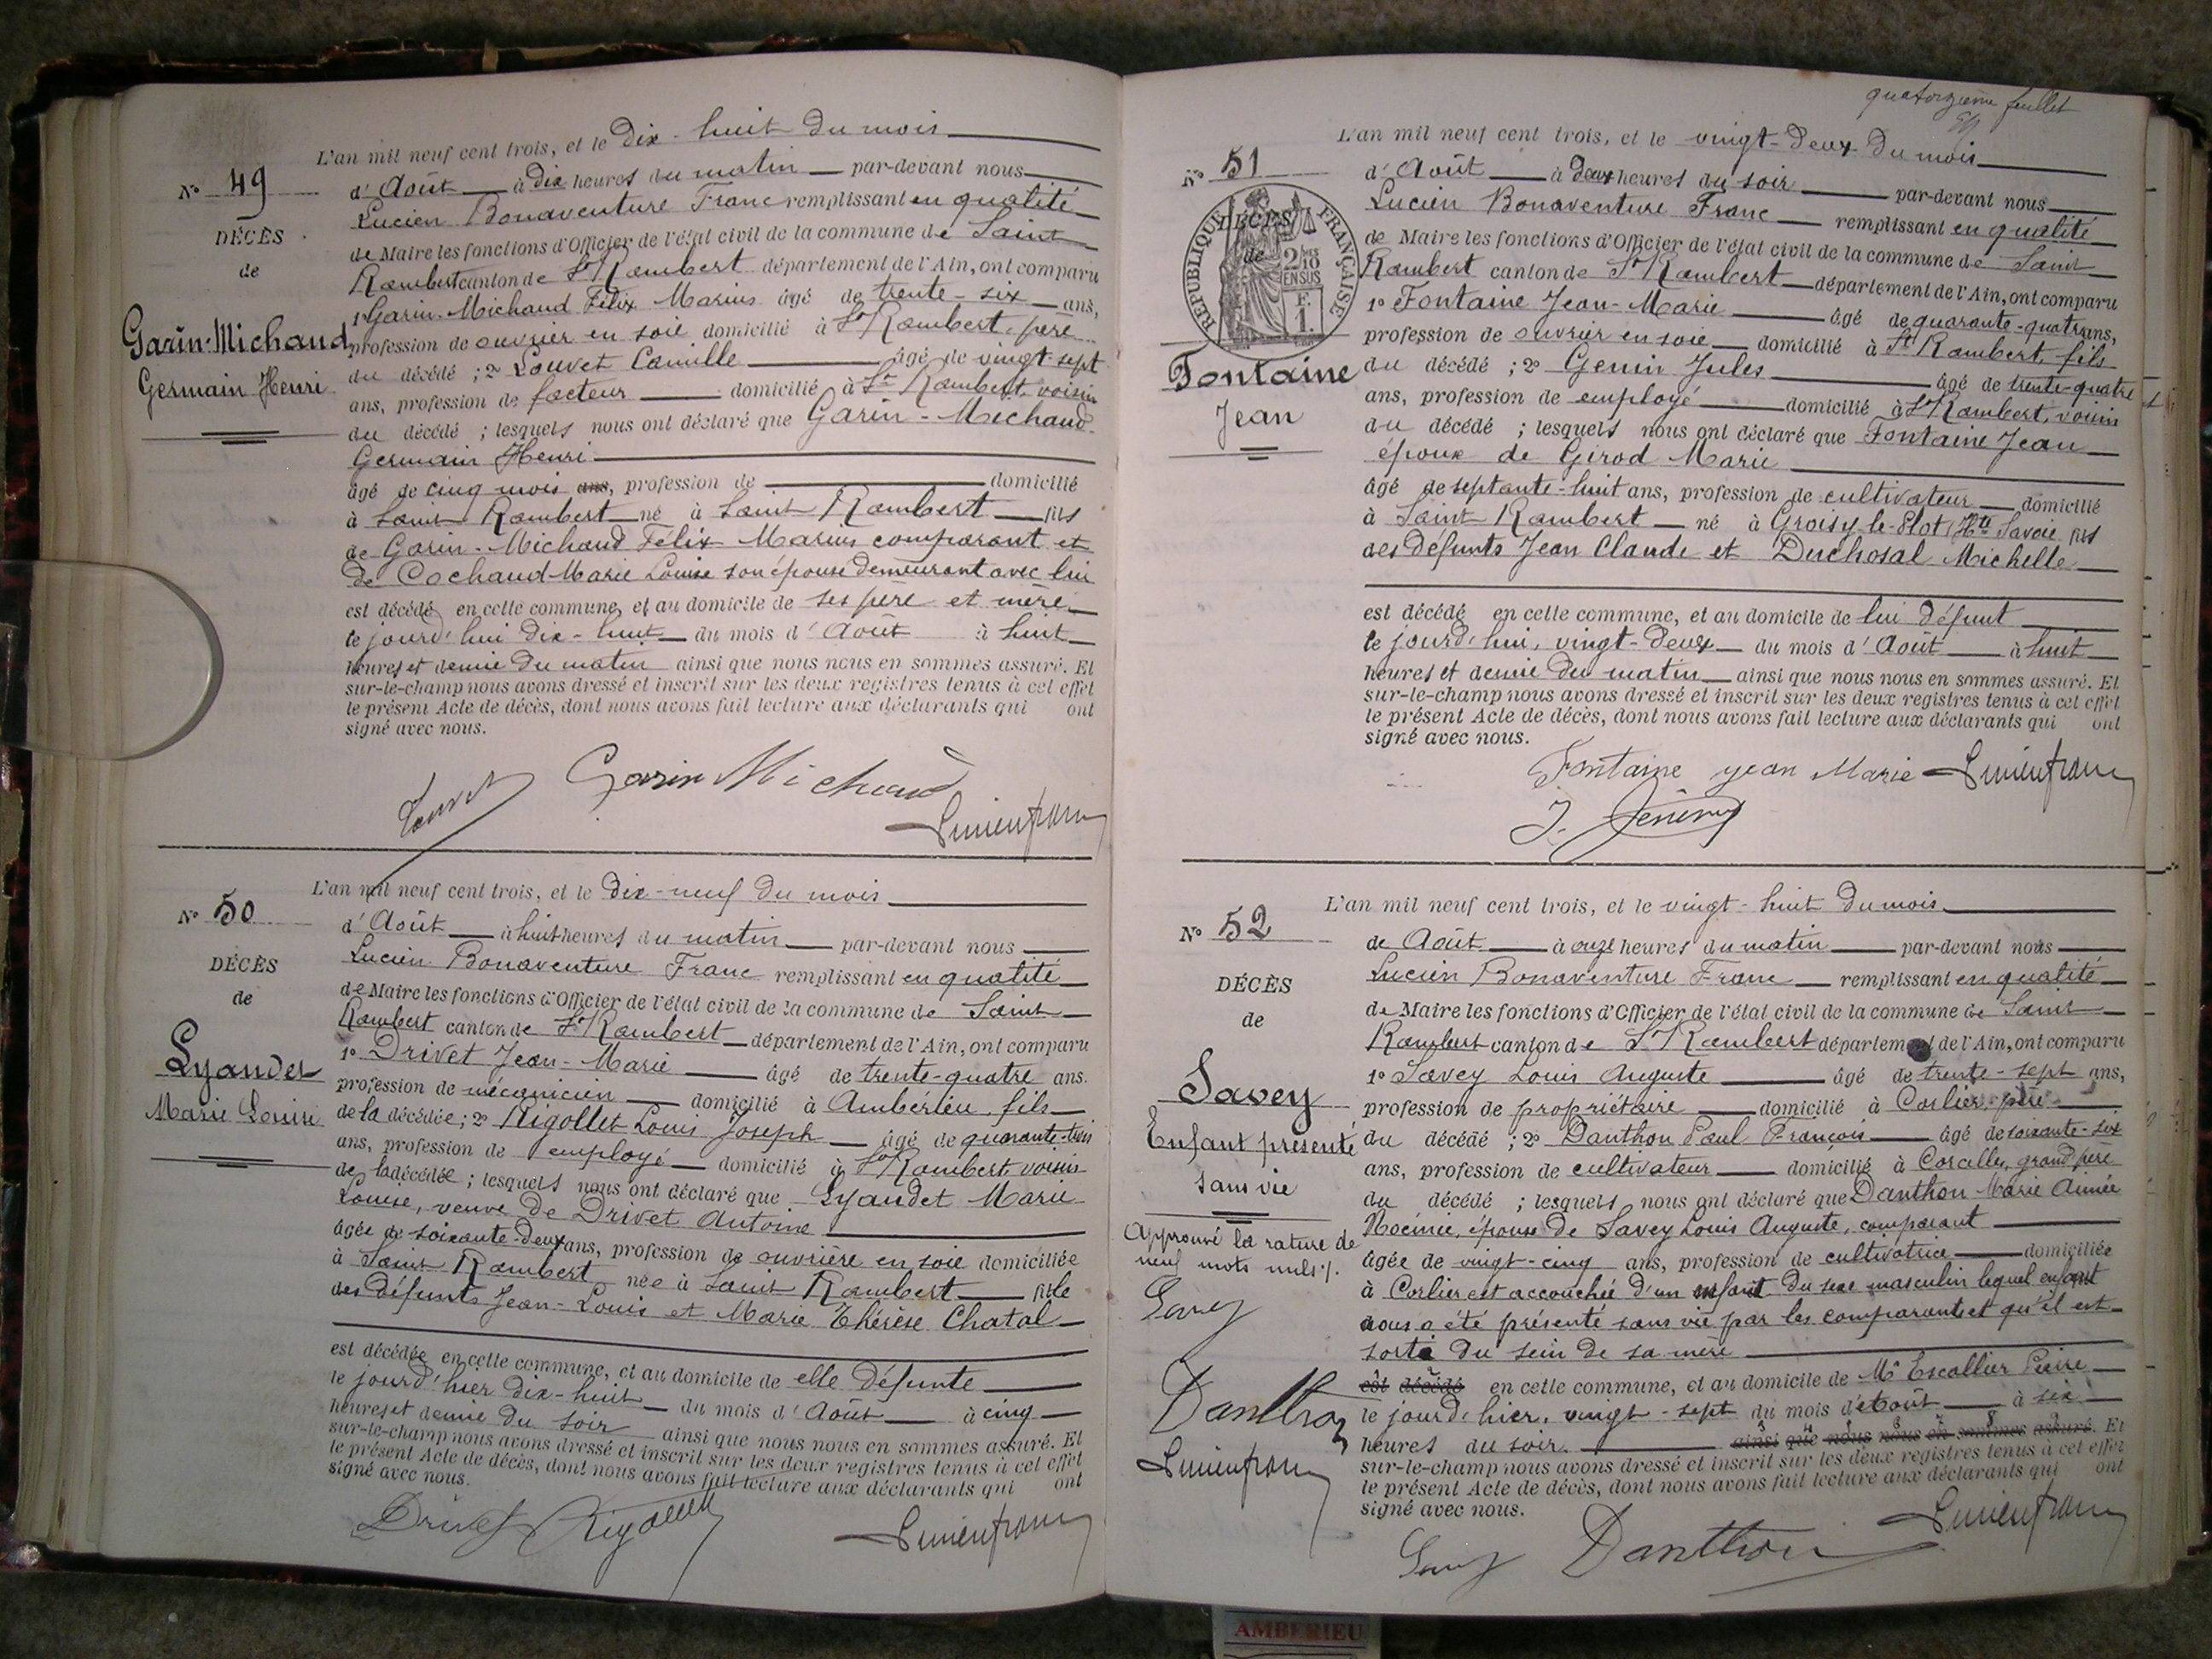 L'an mil neuf cent trois, et le dix-huit du mois
N° 49
d'Août à dix heures du matin par-devant nous
Lucien Bonaventure Franc remplissant en qualité
DÉCÈS
de Maire les fonctions d'Officier de l'état civil de la commune de Saint
de
Rambert canton de St Rambert département de l'Ain, ont comparu
1° Garin-Michaud Félix Marius âgé de trente-six ans,
Garin-Michaud
profession de ouvrier en soie domicilié à St Rambert, père
Germain Henri
du décédé ; 2° Louvet Camille âgé de vingt sept
ans, profession de facteur domicilié à St Rambert, voisin
du décédé ; lesquels nous ont déclaré que Garin-Michaud
Germain Henri
âgé de cinq mois ans, profession de domicilié
à Saint Rambert né à Saint Rambert fils
de Garin-Michaud Félix Marius comparant et
de Cochaud Marie Louise son épouse demeurant avec lui
est décédé en cette commune, et au domicile de ses père et mère
le jourd'hui dix-huit du mois d'Août à huit
heures et demie du matin ainsi que nous nous en sommes assuré. Et
sur-le-champ nous avons dressé et inscrit sur les deux registres tenus à cet effet
le présent Acte de décès, dont nous avons fait lecture aux déclarants qui ont
signé avec nous.
Louvet Garin Michaud
Lucien franc
L'an mil neuf cent trois, et le dix-neuf du mois
N° 50
d'Août à huit heures du matin par-devant nous
Lucien Bonaventure Franc remplissant en qualité
DÉCÈS
de Maire les fonctions d'Officier de l'état civil de la commune de Saint
de
Rambert canton de St Rambert département de l'Ain, ont comparu
1° Drivet Jean-Marie âgé de trente-quatre ans.
Lyandet
profession de mécanicien domicilié à Ambérieu, fils
Marie Louise
de la décédée ; 2° Rigollet Louis Joseph âgé de quarante-trois
ans, profession de employé domicilié à St Rambert, voisin
de la décédée ; lesquels nous ont déclaré que Lyandet Marie
Louise, veuve de Drivet Antoine
âgée de soixante-deux ans, profession de ouvrière en soie domiciliée
à Saint Rambert née à Saint Rambert fille
des défunts Jean-Louis et Marie Thérèse Chatal
est décédée en cette commune, et au domicile de elle défunte
le jourd'hier dix-huit du mois d'Août à cinq
heures et demie du soir ainsi que nous nous en sommes assuré. Et
sur-le-champ nous avons dressé et inscrit sur les deux registres tenus à cet effet
le présent Acte de décès, dont nous avons fait lecture aux déclarants qui ont
signé avec nous.
Drivet Rigollet
Lucien franc
quatorzième feuillet
L'an mil neuf cent trois, et le vingt-deux du mois
N° 51
d'Août à deux heures du soir par-devant nous
Lucien Bonaventure Franc remplissant en qualité
RÉPUBLIQUE FRANÇAISE
DÉCÈS
de
2/10 EN SUS
F. 1.
de Maire les fonctions d'Officier de l'état civil de la commune de Saint
Rambert canton de St Rambert département de l'Ain, ont comparu
1° Fontaine Jean-Marie âgé de quarante-quatre ans,
profession de ouvrier en soie domicilié à St Rambert, fils
Fontaine
du décédé ; 2° Genin Jules âgé de trente-quatre
Jean
ans, profession de employé domicilié à St Rambert, voisin
du décédé ; lesquels nous ont déclaré que Fontaine Jean
époux de Girod Marie
âgé de septante-huit ans, profession de cultivateur domicilié
à Saint Rambert né à Groisy-le-Plot (Hte Savoie fils
des défunts Jean Claude et Duchosal Michelle
est décédé en cette commune, et au domicile de lui défunt
le jourd'hui, vingt-deux du mois d'Août à huit
heures et demie du matin ainsi que nous nous en sommes assuré. Et
sur-le-champ nous avons dressé et inscrit sur les deux registres tenus à cet effet
le présent Acte de décès, dont nous avons fait lecture aux déclarants qui ont
signé avec nous.
Fontaine jean Marie Lucien franc
J. Genin
L'an mil neuf cent trois, et le vingt-huit du mois
N° 52
de Août à onze heures du matin par-devant nous
Lucien Bonaventure Franc remplissant en qualité
DÉCÈS
de Maire les fonctions d'Officier de l'état civil de la commune de Saint
de
Rambert canton de St Rambert département de l'Ain, ont comparu
1° Savey Louis Auguste âgé de trente-sept ans,
Savey
profession de propriétaire domicilié à Corlier, père
Enfant présenté
du décédé ; 2° Danthon Paul François âgé de soixante-six
ans, profession de cultivateur domicilié à Corcelles, grand père
sans vie
du décédé ; lesquels nous ont déclaré que Danthon Marie Année
Noémie, épouse de Savey Louis Auguste, comparant
Approuvé la rature de
neuf mots nuls.
âgée de vingt-cinq ans, profession de cultivatrice domiciliée
à Corlier est accouchée d'un enfant du sexe masculin lequel enfant
Savey
nous a été présenté sans vie par les comparants et qu'il est
sorti du sein de sa mère
est décédé en cette commune, et au domicile de Mr Escallier Pierre
Danthon
le jourd'hier, vingt-sept du mois d'Août à six
heures du soir. ainsi que nous nous en sommes assuré. Et
Lucien franc
sur-le-champ nous avons dressé et inscrit sur les deux registres tenus à cet effet
le présent Acte de décès, dont nous avons fait lecture aux déclarants qui ont
signé avec nous.
Lucien franc
Savey Danthon
AMBERIEU